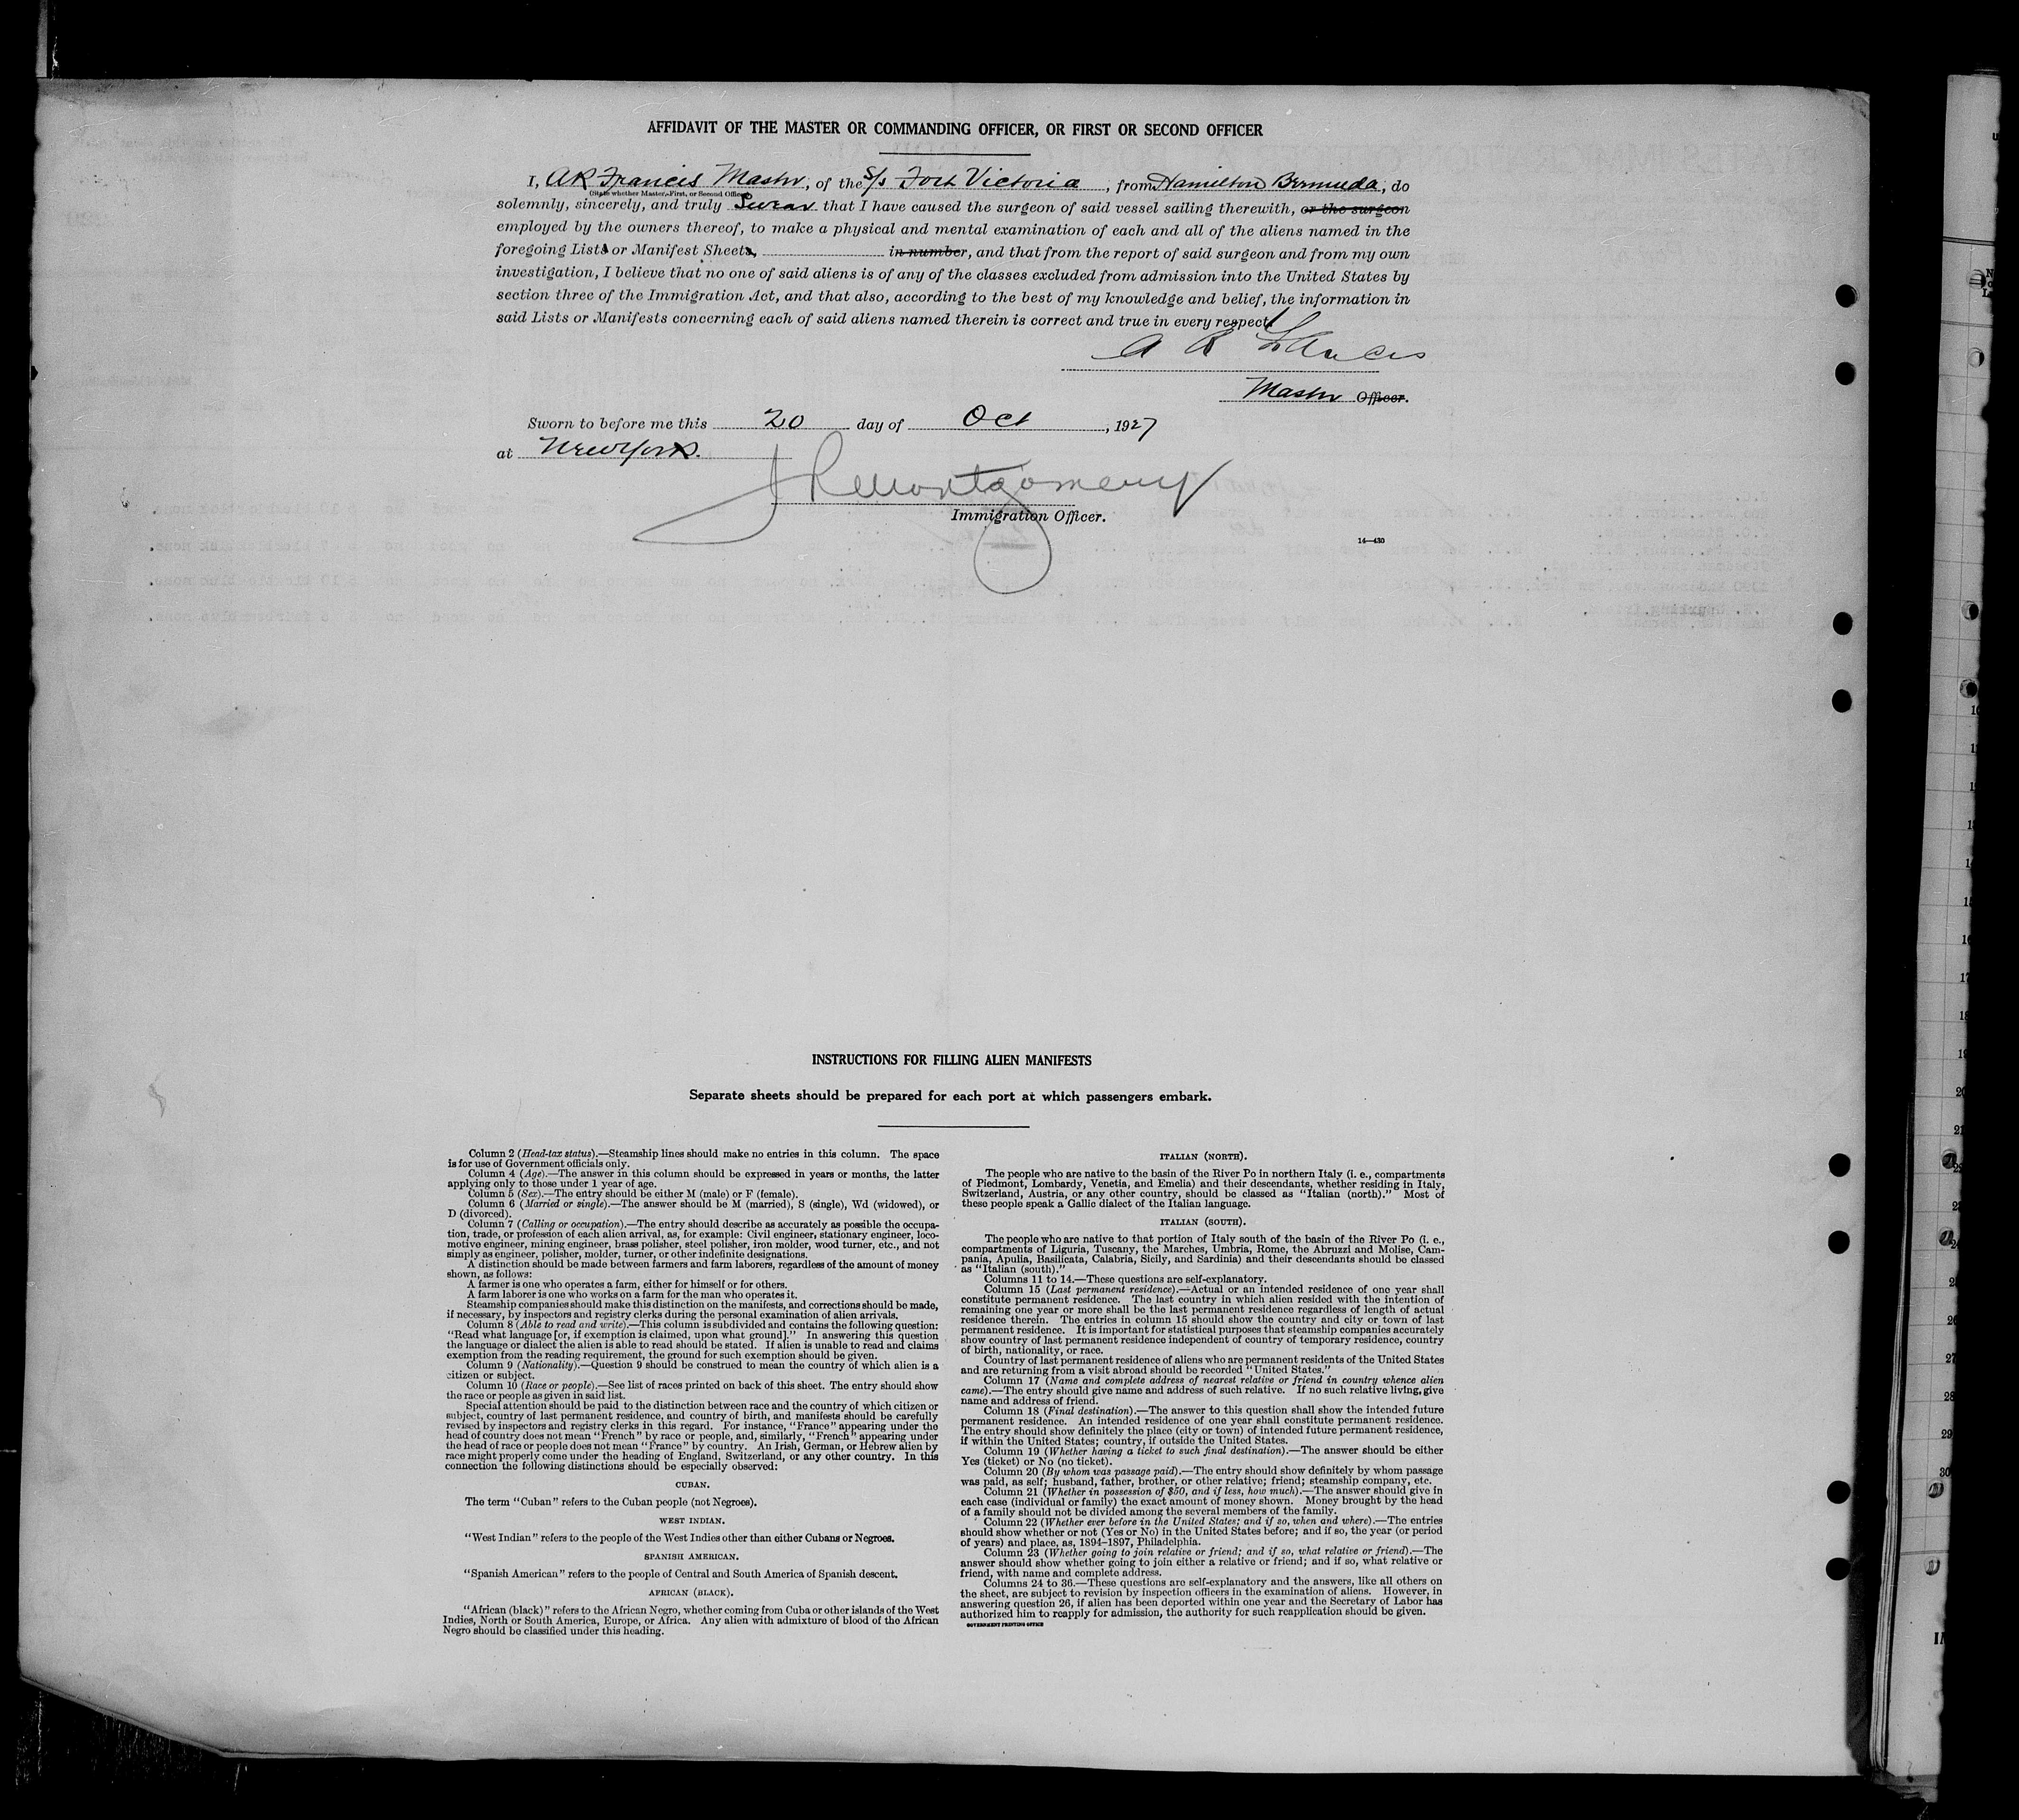 AFFIDAVIT OF THE MASTER OR COMMANDING OFFICER, OR FIRST OR SECOND OFFICER
I, A R Francis Master, of the S/s Fort Victoria, from Hamilton Bermuda, do
(State whether Master, First, or Second Officer)
solemnly, sincerely, and truly Swear that I have caused the surgeon of said vessel sailing therewith, or the surgeon
employed by the owners thereof, to make a physical and mental examination of each and all of the aliens named in the
foregoing Lists or Manifest Sheets, in number, and that from the report of said surgeon and from my own
investigation, I believe that no one of said aliens is of any of the classes excluded from admission into the United States by
section three of the Immigration Act, and that also, according to the best of my knowledge and belief, the information in
said Lists or Manifests concerning each of said aliens named therein is correct and true in every respect.
A R Francis
Master Officer.
Sworn to before me this 20 day of Oct, 1927
at New York.
Montgomery
Immigration Officer.
14—430
INSTRUCTIONS FOR FILLING ALIEN MANIFESTS
Separate sheets should be prepared for each port at which passengers embark.
Column 2 (Head-tax status).—Steamship lines should make no entries in this column. The space
is for use of Government officials only.
Column 4 (Age).—The answer in this column should be expressed in years or months, the latter
applying only to those under 1 year of age.
Column 5 (Sex).—The entry should be either M (male) or F (female).
Column 6 (Married or single).—The answer should be M (married), S (single), Wd (widowed), or
D (divorced).
Column 7 (Calling or occupation).—The entry should describe as accurately as possible the occupa-
tion, trade, or profession of each alien arrival, as, for example: Civil engineer, stationary engineer, loco-
motive engineer, mining engineer, brass polisher, steel polisher, iron molder, wood turner, etc., and not
simply as engineer, polisher, molder, turner, or other indefinite designations.
A distinction should be made between farmers and farm laborers, regardless of the amount of money
shown, as follows:
A farmer is one who operates a farm, either for himself or for others.
A farm laborer is one who works on a farm for the man who operates it.
Steamship companies should make this distinction on the manifests, and corrections should be made,
if necessary, by inspectors and registry clerks during the personal examination of alien arrivals.
Column 8 (Able to read and write).—This column is subdivided and contains the following question:
"Read what language [or, if exemption is claimed, upon what ground]." In answering this question
the language or dialect the alien is able to read should be stated. If alien is unable to read and claims
exemption from the reading requirement, the ground for such exemption should be given.
Column 9 (Nationality).—Question 9 should be construed to mean the country of which alien is a
citizen or subject.
Column 10 (Race or people).—See list of races printed on back of this sheet. The entry should show
the race or people as given in said list.
Special attention should be paid to the distinction between race and the country of which citizen or
subject, country of last permanent residence, and country of birth, and manifests should be carefully
revised by inspectors and registry clerks in this regard. For instance, "France" appearing under the
head of country does not mean "French" by race or people, and, similarly, "French" appearing under
the head of race or people does not mean "France" by country. An Irish, German, or Hebrew alien by
race might properly come under the heading of England, Switzerland, or any other country. In this
connection the following distinctions should be especially observed:
CUBAN.
The term "Cuban" refers to the Cuban people (not Negroes).
WEST INDIAN.
"West Indian" refers to the people of the West Indies other than either Cubans or Negroes.
SPANISH AMERICAN.
"Spanish American" refers to the people of Central and South America of Spanish descent.
AFRICAN (BLACK).
"African (black)" refers to the African Negro, whether coming from Cuba or other islands of the West
Indies, North or South America, Europe, or Africa. Any alien with admixture of blood of the African
Negro should be classified under this heading.
ITALIAN (NORTH).
The people who are native to the basin of the River Po in northern Italy (i. e., compartments
of Piedmont, Lombardy, Venetia, and Emelia) and their descendants, whether residing in Italy,
Switzerland, Austria, or any other country, should be classed as "Italian (north)." Most of
these people speak a Gallic dialect of the Italian language.
ITALIAN (SOUTH).
The people who are native to that portion of Italy south of the basin of the River Po (i. e.,
compartments of Liguria, Tuscany, the Marches, Umbria, Rome, the Abruzzi and Molise, Cam-
pania, Apulia, Basilicata, Calabria, Sicily, and Sardinia) and their descendants should be classed
as "Italian (south)."
Columns 11 to 14.—These questions are self-explanatory.
Column 15 (Last permanent residence).—Actual or an intended residence of one year shall
constitute permanent residence. The last country in which alien resided with the intention of
remaining one year or more shall be the last permanent residence regardless of length of actual
residence therein. The entries in column 15 should show the country and city or town of last
permanent residence. It is important for statistical purposes that steamship companies accurately
show country of last permanent residence independent of country of temporary residence, country
of birth, nationality, or race.
Country of last permanent residence of aliens who are permanent residents of the United States
and are returning from a visit abroad should be recorded "United States."
Column 17 (Name and complete address of nearest relative or friend in country whence alien
came).—The entry should give name and address of such relative. If no such relative living, give
name and address of friend.
Column 18 (Final destination).—The answer to this question shall show the intended future
permanent residence. An intended residence of one year shall constitute permanent residence.
The entry should show definitely the place (city or town) of intended future permanent residence,
if within the United States; country, if outside the United States.
Column 19 (Whether having a ticket to such final destination).—The answer should be either
Yes (ticket) or No (no ticket).
Column 20 (By whom was passage paid).—The entry should show definitely by whom passage
was paid, as self; husband, father, brother, or other relative; friend; steamship company, etc.
Column 21 (Whether in possession of $50, and if less, how much).—The answer should give in
each case (individual or family) the exact amount of money shown. Money brought by the head
of a family should not be divided among the several members of the family.
Column 22 (Whether ever before in the United States; and if so, when and where).—The entries
should show whether or not (Yes or No) in the United States before; and if so, the year (or period
of years) and place, as, 1894-1897, Philadelphia.
Column 23 (Whether going to join relative or friend; and if so, what relative or friend).—The
answer should show whether going to join either a relative or friend; and if so, what relative or
friend, with name and complete address.
Columns 24 to 36.—These questions are self-explanatory and the answers, like all others on
the sheet, are subject to revision by inspection officers in the examination of aliens. However, in
answering question 26, if alien has been deported within one year and the Secretary of Labor has
authorized him to reapply for admission, the authority for such reapplication should be given.
GOVERNMENT PRINTING OFFICE